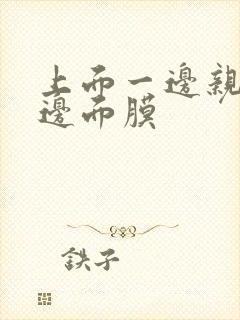 上而一邊親
邊而膜
鉄子